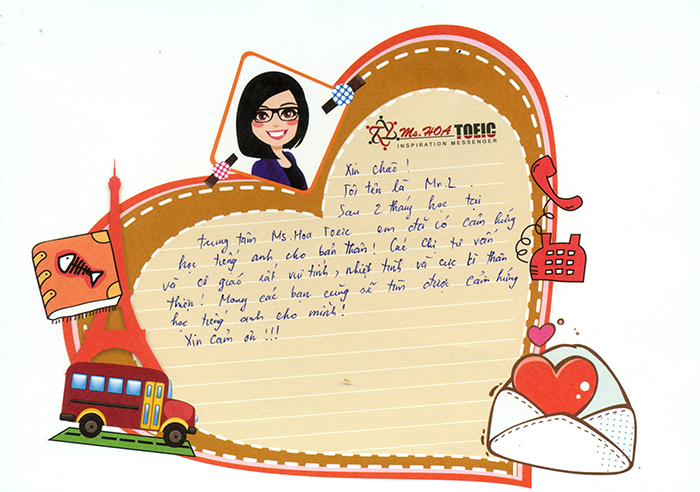 Ms. HOA TOEIC
INSPIRATION MESSENGER
Xin chào !
Tôi tên là Mr.L.
Sau 2 tháng học tại
trung tâm Ms.Hoa Toeic em đã có cảm hứng
học tiếng anh cho bản thân! Các Chị tư vấn
và cô giáo rất vui tính, nhiệt tình và cực kì thân
thiện! Mong các bạn cũng sẽ tìm được cảm hứng
học tiếng anh cho mình!
Xin cảm ơn !!!